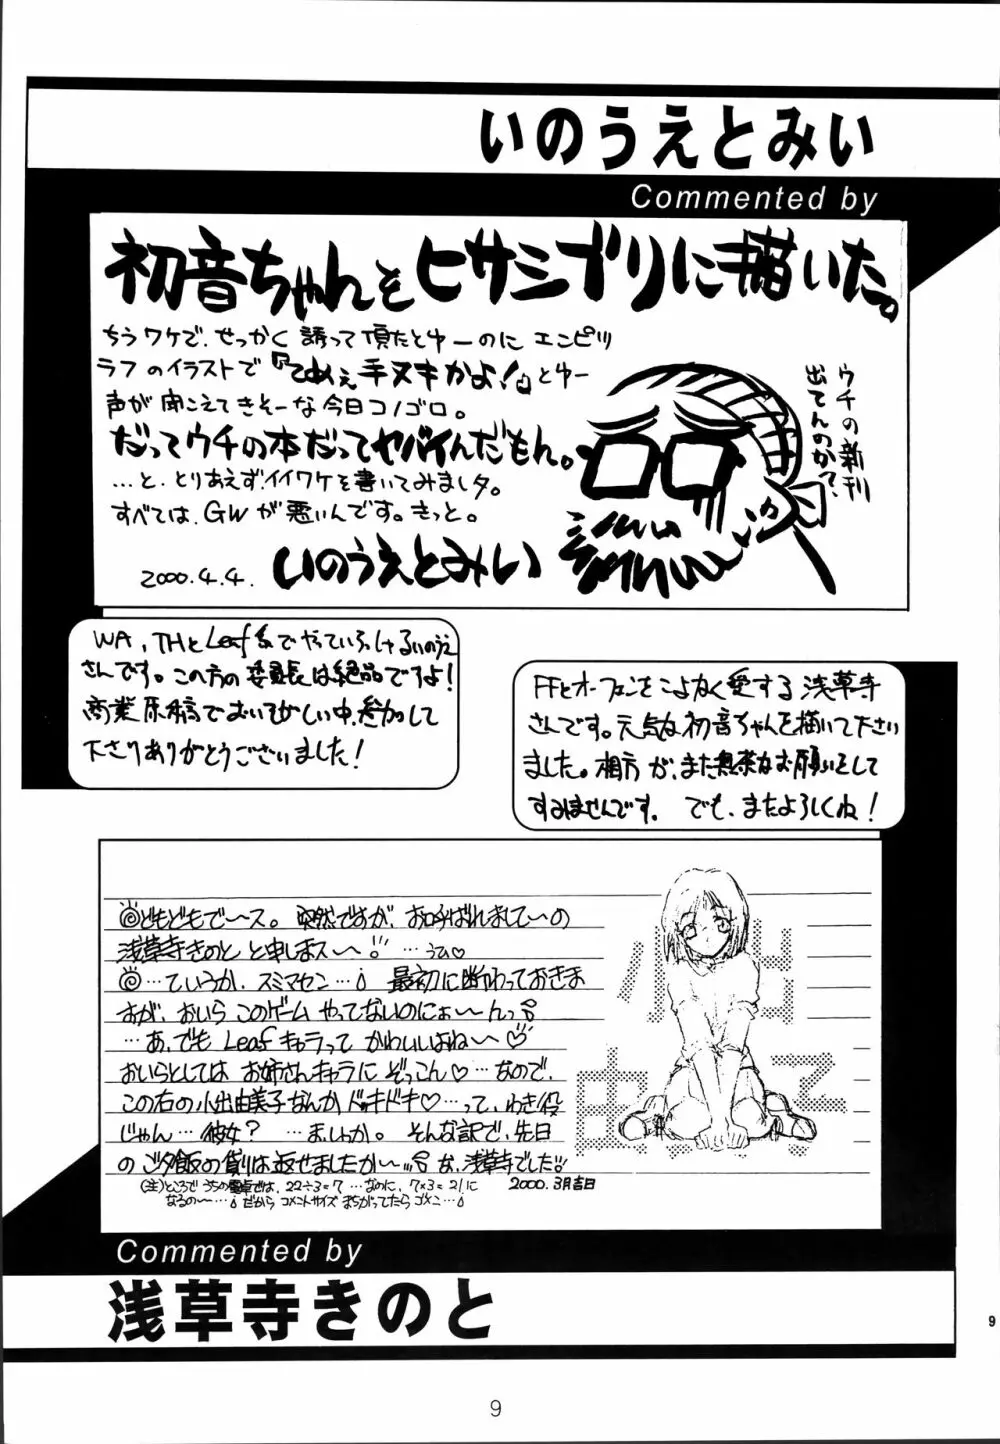 いのうえとみい
Commented by
初音ちゃんをヒサシブリに描いた。
ちうワケで、せっかく誘って頂たとゆーのにエンピツ
ラフのイラストで『てめぇ手ヌキかよ!』とゆー
声が聞こえてきそーな今日コノゴロ。
だってウチの本だってヤバイんだもん。
…と、とりあえずイイワケを書いてみましタ。
すべては、GWが悪いんです。きっと。
2000.4.4. いのうえとみい
ウチの新刊
出てんのか?
WA、THとLeaf系でやっていらっしゃるいのうえ
さんです。この方の委員長は絶品ですよ!
商業原稿でおいそがしい中、参加して
下さりありがとうございました!
FFとオーフェンをこよなく愛する浅草寺
さんです。元気な初音ちゃんを描いて下さい
ました。相方が、また無茶なお願いをして
すみませんです。 でも、またよろしくね!
どもどもで〜ス。突然ですが、お呼ばれしまして〜の
浅草寺きのと と申しまス〜 …うひ♡
…ていうか、スミマセン… 最初に断わっておきま
すが、おいら このゲーム やってないのにょ〜んっ
…あ、でも Leaf キャラって かわいいよね〜♡
おいらとしては お姉さんキャラに ぞっこん♡…なので、
この右の小出由美子なんか ドッキドキ♡…って、わき役
じゃん…彼女? …ましょか。 そんな訳で、先日
の ご夕飯の借りは返せましたか〜 な、浅草寺でした!!
(注)ところで うちの電卓では、22÷3=7 …なのに、7×3=21に 2000.3月吉日
なるの〜… だから コメントサイズ まちがってたら ゴメン…
Commented by
浅草寺きのと
9
9